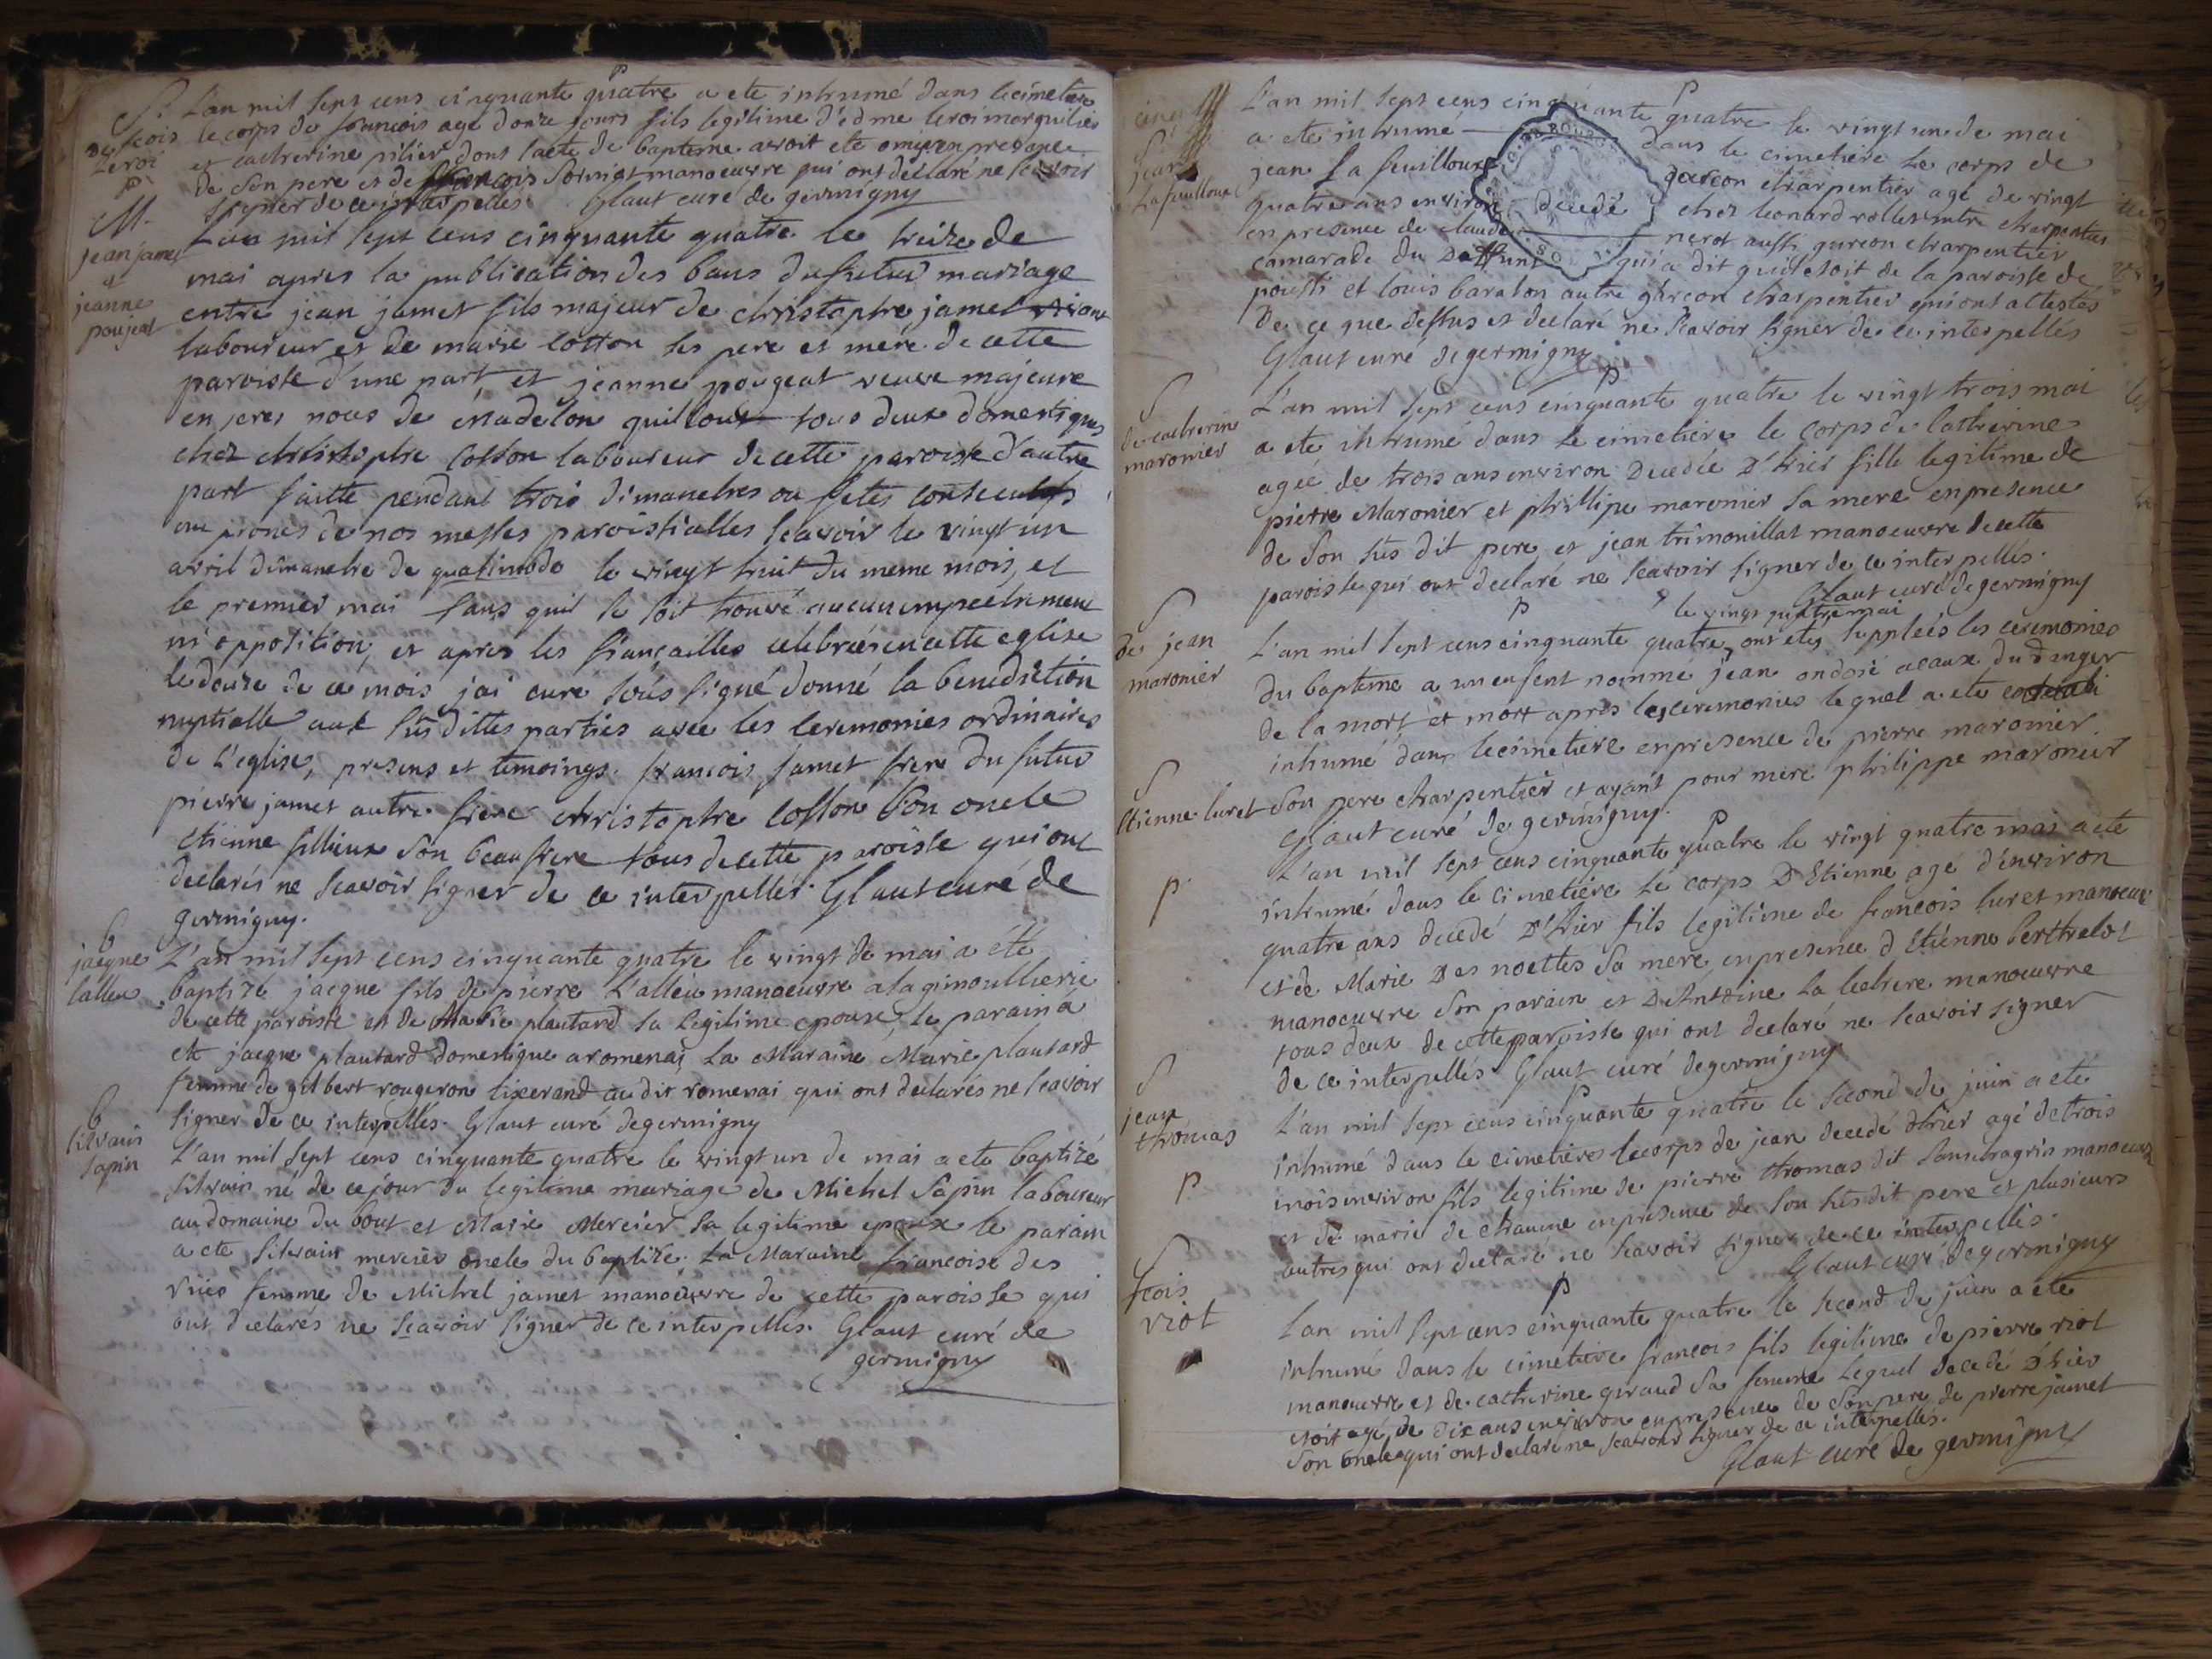 S.
De fcois
Leroi
P
L'an mil sept cens cinquante quatre a ete inhumé dans le cimetiere
le corps de francois agé donze jours fils legitime d'edme leroi marguilier
et catherine pilier dont l'acte de bapteme avoit ete omis en presence
de son pere et de francois manoeuvre qui ont déclaré ne scavoir
signer de ce interpelles. Glaut curé de germigny
M.
jean jamet
et
jeanne
poujeat
L'an mil sept cens cinquante quatre le treize de
mai apres la publication des bans du futur mariage
entre jean jamet fils majeur de christophre jamet vivant
laboureur et de marie cotton ses pere et mere de cette
paroisse d'une part, et jeanne pougeat veuve majeure
de Madelon tous deux domestiques
chez christophre Cotton laboureur de cette paroisse d'autre
part faitte pendant trois dimanches ou fetes consecutifs
au prones de nos messes paroissialles scavoir le vingt un
avril dimanche de quasimodo le vingt huit du meme mois, et
le premier mai sans quil se soit trouvé aucun impechement
ni opposition, et apres les fiançailles celebrées en cette eglise
le douze de ce mois jai curé soussigné donné la benediction
nuptialle aux susdittes parties avec les ceremonies ordinaires
de l'eglise, presens et temoings. francois jamet frere du futur
pierre jamet autre frere christophre cotton son oncle
Etienne fillieux son beau frere tous de cette paroisse qui ont
declarés ne scavoir signer de ce interpellés. Glaut curé de
germigny.
b
jacque
lalleu
L'an mil sept cens cinquante quatre le vingt de mai a été
baptizé jacque fils de pierre L'alleu manoeuvre a la gimoulherie
de cette paroisse et de Marie plautard sa legitime epouse, le parain a
ete jacque plautard domestique a romenai La Maraine Marie plautard
femme de gilbert rougeron tixerand au dit romenai qui ont declarés ne scavoir
signer de ce interpellés. Glaut curé de germigny
b
silvain
sapin
L'an mil sept cens cinquante quatre le vingt un de mai a ete baptizé
silvain né de ce jour du legitime mariage de Michel Sapin laboureur
au domaine du bout et Marie Mercier sa legitime epouse le parain
a ete silvain mercier oncle du baptizé. La Maraine francoise des
vries femme de Michel jamet manoeuvre de cette paroisse qui
ont declarés ne scavoir signer de ce interpellés. Glaut curé de
germigny
S
jean
Lafeuilloux
L'an mil sept cens cinquante quatre le vingt un de mai
a ete inhumé dans le cimetiere Le corps de
jean La feuilloux garcon charpentier agé de vingt
quatre ans environ decedé chez leonard rollet mtre charpentier
en presence de claude nerot aussi garcon charpentier
camarade du Deffunt qui a dit quil etoit de la paroisse de
pousti et louis baraton autre garcon charpentier qui ont attestés
de ce que dessus et declaré ne scavoir signer de ce interpelles
Glaut curé de germigny
S
de catherine
maronier
L'an mil sept cens cinquante quatre le vingt trois mai
a ete inhumé dans le cimetiere le corps de Catherine
agée de trois ans environ Decedée D'hier fille legitime de
pierre Maronier et phillipe maronier sa mere en presence
de son sus dit pere, et jean trimouillat manoeuvre de cette
paroisse qui ont declaré ne scavoir signer de ce interpellés.
Glaut curé de germigny
S
de jean
maronier
le vingt quatre mai
L'an mil sept cens cinquante quatre, ont etés suppléés les ceremonies
du bapteme a un enfent nommé jean ondoié a cause du danger
de la mort et mort apres les ceremonies lequel a ete
inhumé dans le cimetiere en presence de pierre maronier
son pere charpentier et ayant pour mere philippe maronier
Glaut curé de germigny.
S
Etienne luret
p.
L'an mil sept cens cinquante quatre le vingt quatre mai a ete
inhumé dans le cimetiere Le corps D Etienne agé d'environ
quatre ans decedé D'hier fils legitime de francois luret manoeuv
et de Marie Des noettes sa mere en presence d Etienne berthelot
manoeuvre son parain et D Antoine La manoeuvre
tous deux de cette paroisse qui ont declaré ne scavoir signer
de ce interpellés Glaut curé de germigny
S
jean
thomas
p
L'an mil sept cens cinquante quatre le second de juin a eté
inhumé dans le cimetiere le corps de jean decedé dhier agé de trois
mois environ fils legitime de pierre thomas dit manoeuvre
et de marie de chaume en presence de son susdit pere et plusieurs
autres qui ont declaré ne scavoir signer de ce interpellés.
Glaut curé de germigny
S
fcois
viot
L'an mil sept cens cinquante quatre le second de juin a ete
inhumé dans le cimetiere francois fils legitime de pierre viot
manoeuvre et de catherine geraud sa femme Lequel decedé d'hier
etoit agé de dix ans environ en presence de son pere de pierre jamet
son oncle qui ont declaré ne scavoir signer de ce interpellés.
Glaut curé de germigny